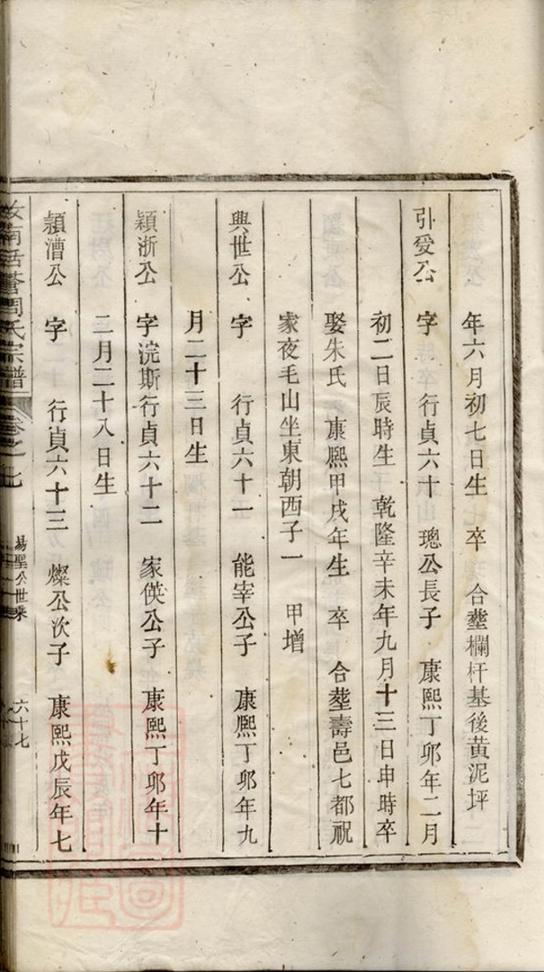 年六月初七日生　卒　合塟欄杆基後黄泥坪
引爱公　字　行貞六十　璁公長子　康熙丁卯年二月
初二日辰時生　乾隆辛未年九月十三日申時卒
娶朱氏　康熈甲戌年生　卒　合塟壽邑七都祝
家夜毛山坐東朝西子一　甲增
興世公　字　行貞六十一　能宰公子　康熈丁卯年九
月二十三日生
穎浙公　字浣斯行貞六十二　家偀公子　康熙丁卯年十
二月二十八日生
穎漕公　字　行貞六十三　燦公次子　康熙戊辰年七
汝南活香周氏宗譜　卷之七　六十七